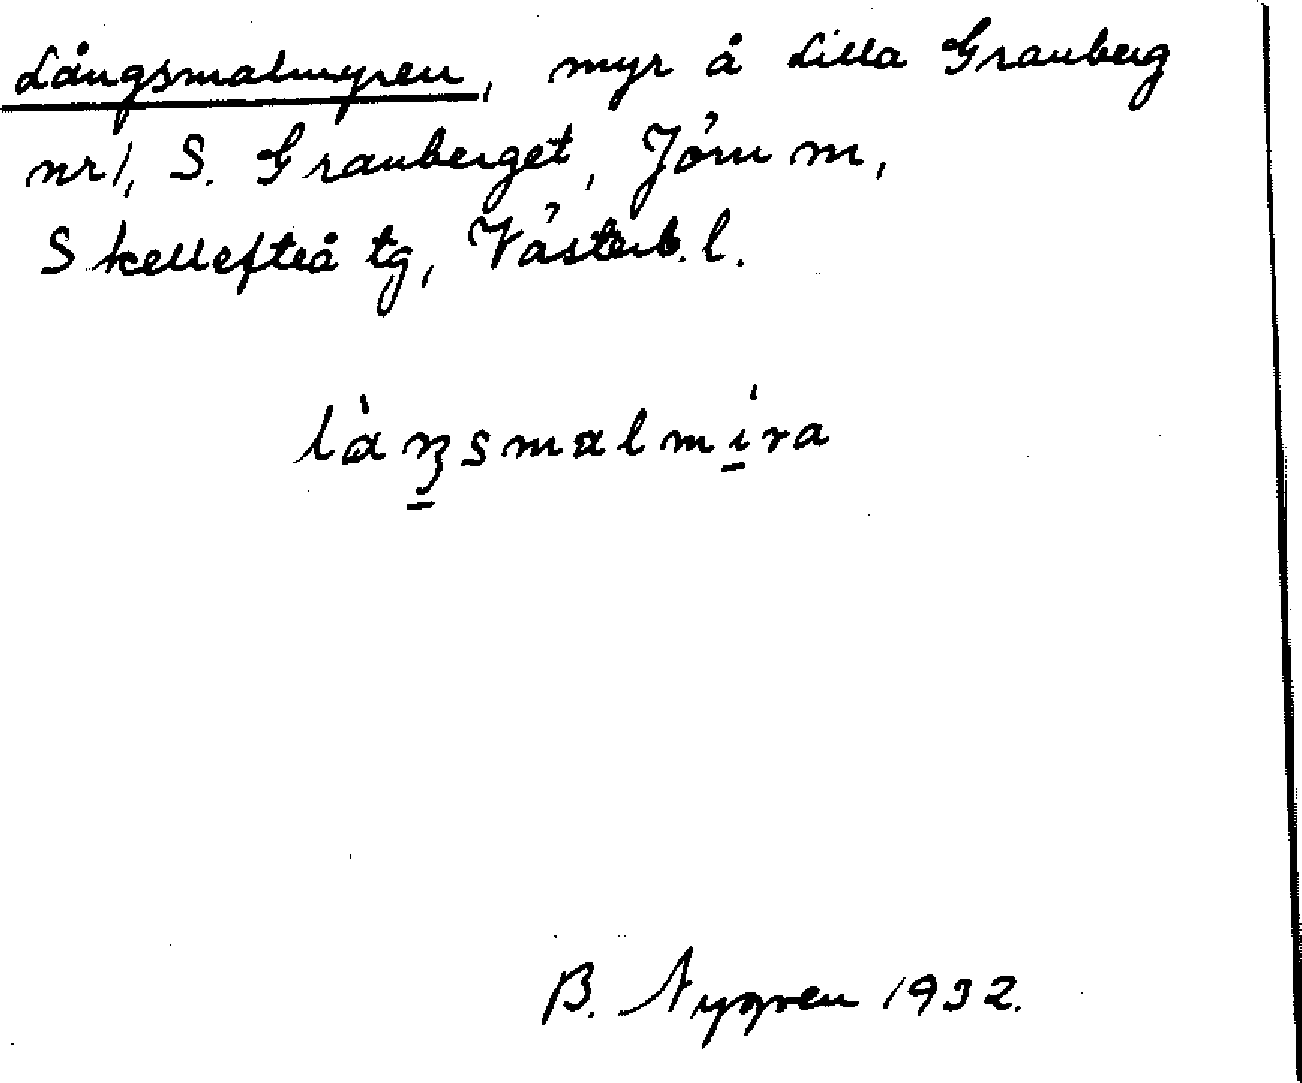 Långsmalmyren, myr å Lilla Granberg
nr 1, S. Granberget, Jörn m,
Skellefteå tg, Västerb. l.
là̱ŋsmalmíra
B. Nygren 1932.